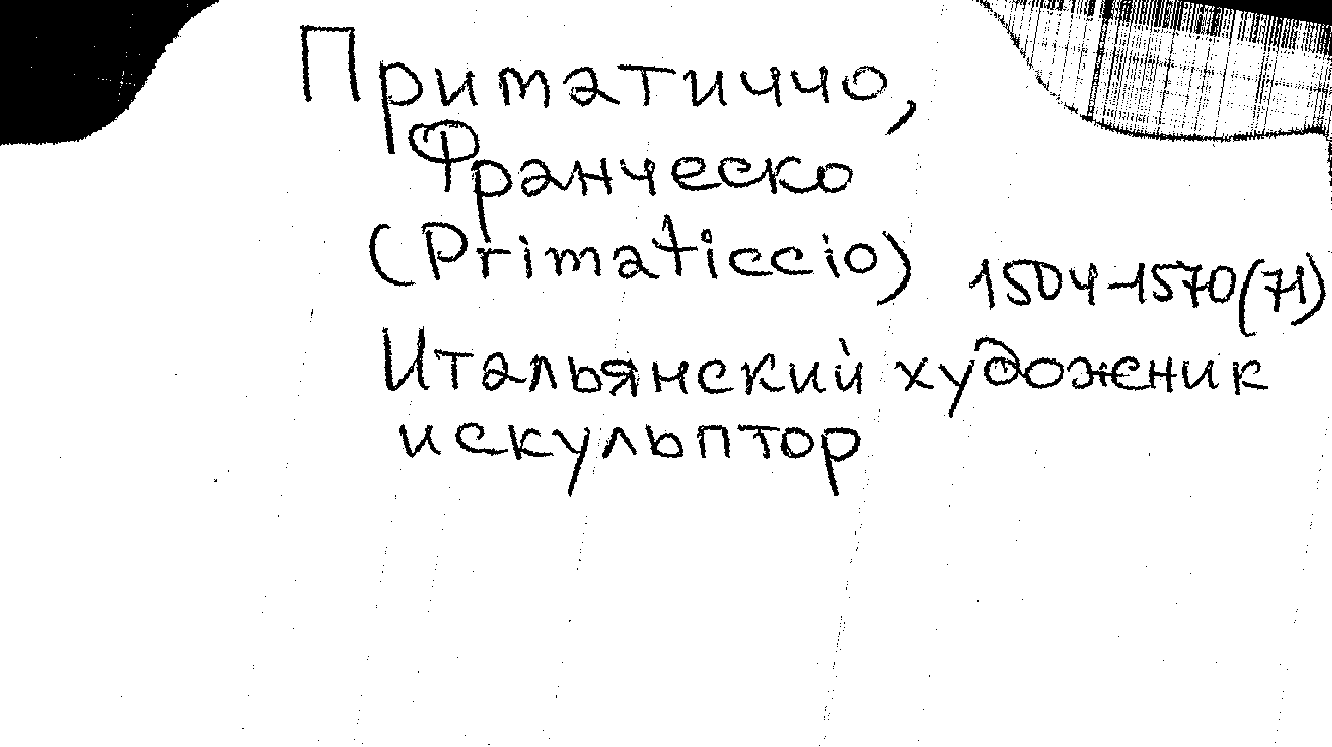 Приматиччо,
Франческо
(Primaticcio) 1504-1570(71)
Итальянский художник
искульптор